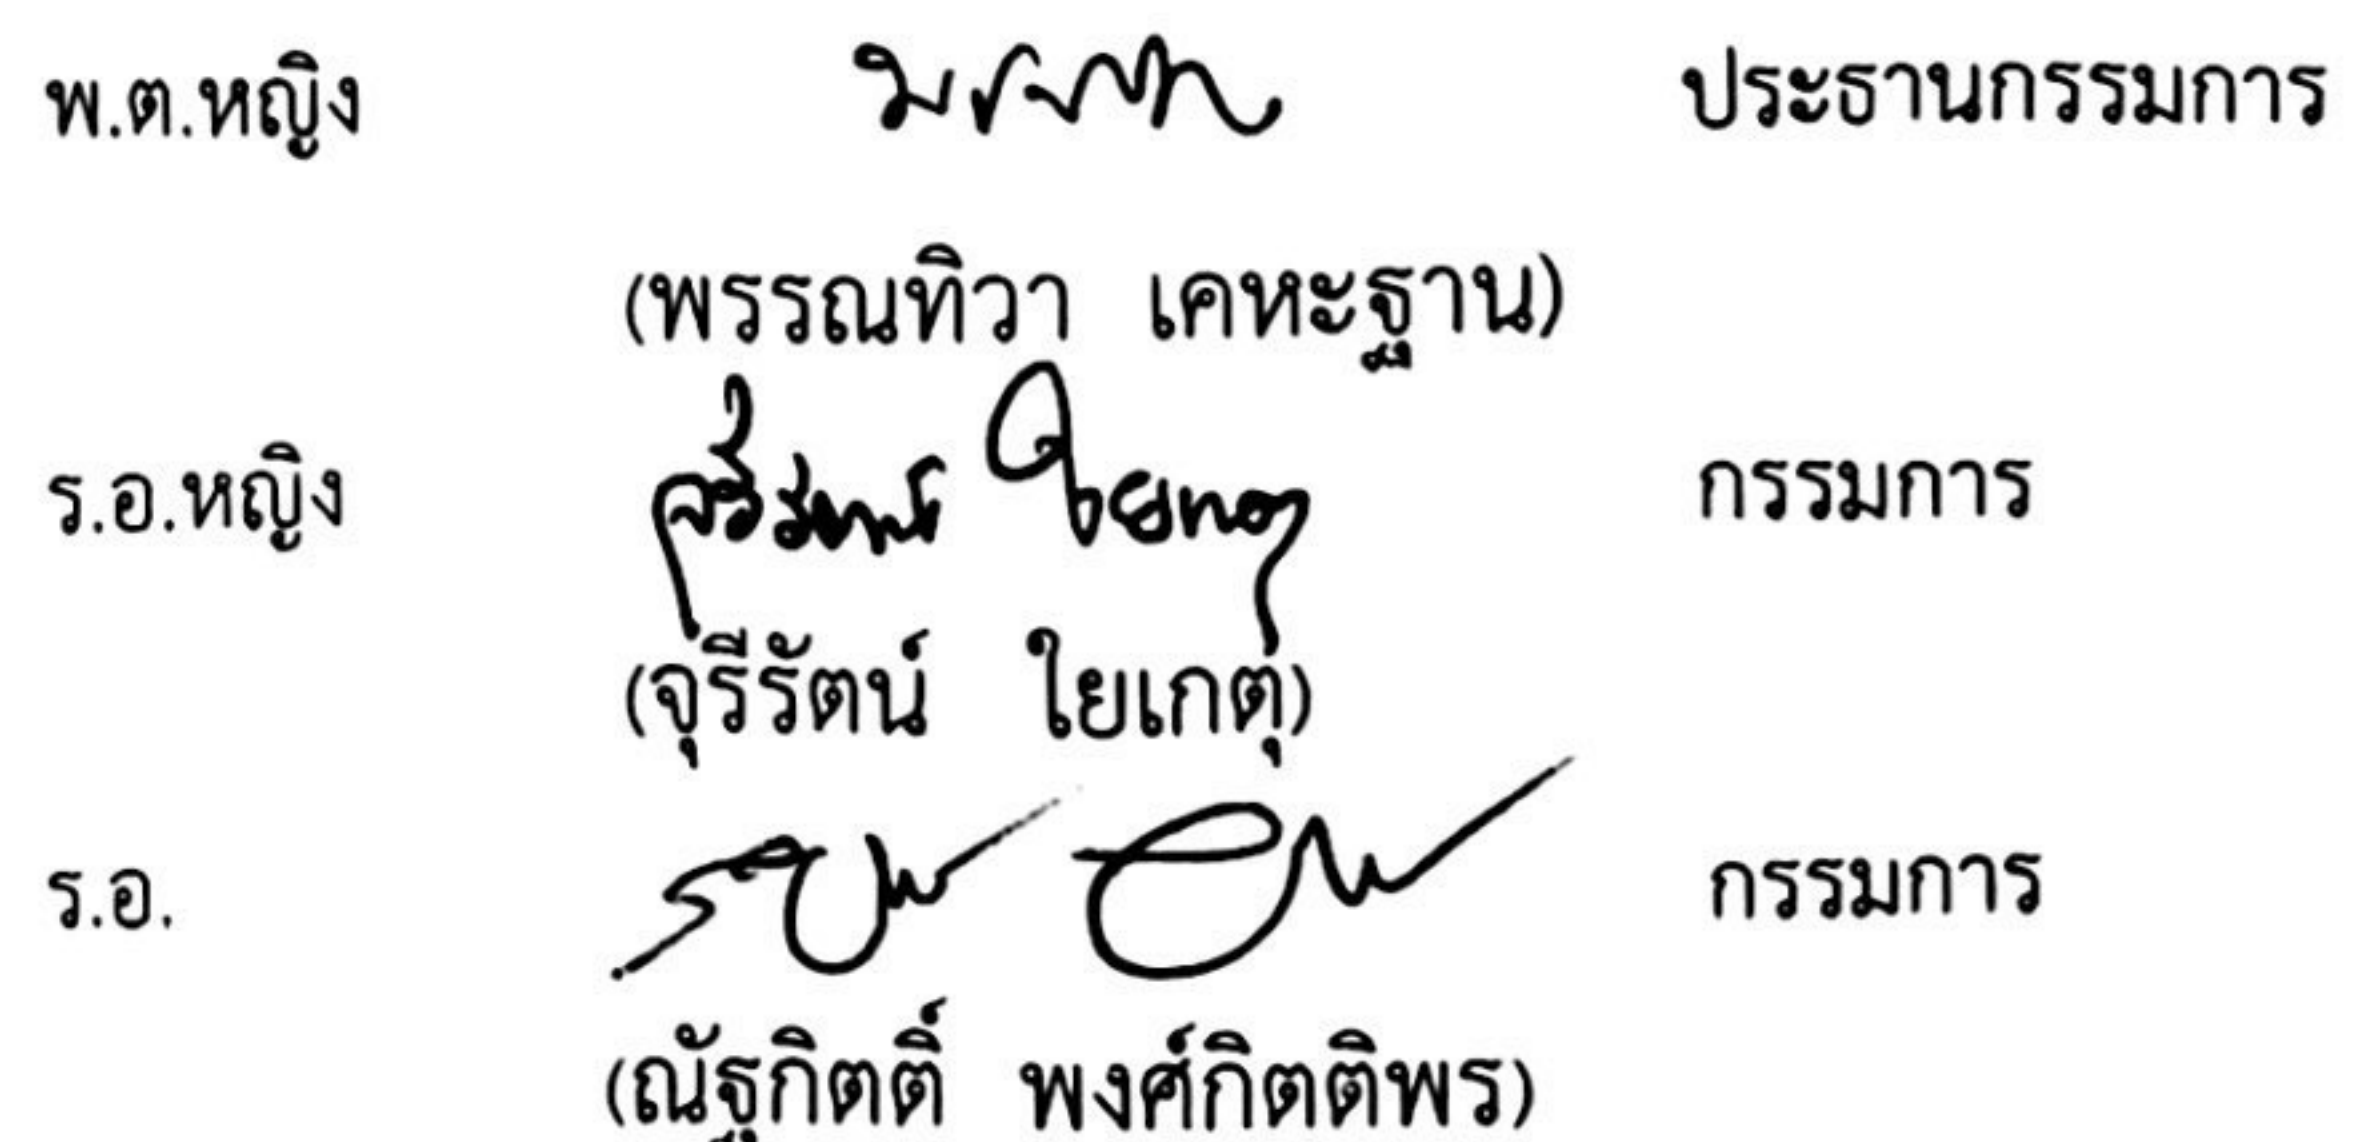 พ.ต.หญิง ประธานกรรมการ
(พรรณทิวา เคหะฐาน)
ร.อ.หญิง จุรีรัตน์ ใยเกตุ กรรมการ
(จุรีรัตน์ ใยเกตุ)
ร.อ. กรรมการ
(ณัฐกิตติ์ พงศ์กิตติพร)